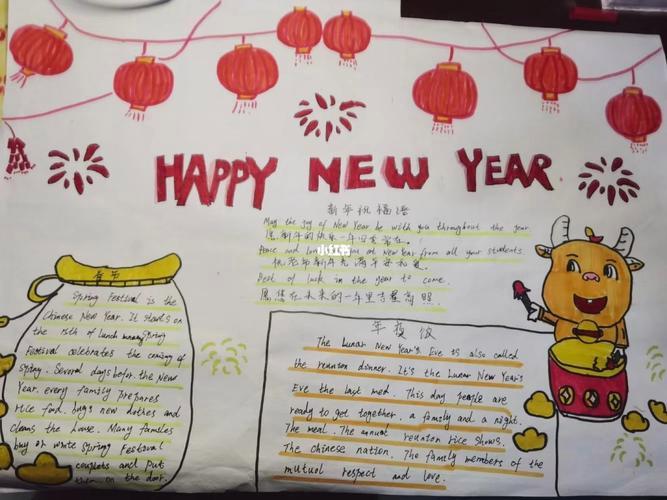 HAPPY NEW YEAR
新年祝福语
May the joy of New Year be with you throughout the year
愿新年的快乐一年四季常在。
Peace and at New Year from all your students.
祝老师新年充满平安和爱
Best of luck in the year to come.
愿您在未来的一年里吉星高照
小红书
春节
Spring Festival is the
Chinese New Year. It starts on
the 15th of lunch Spring
Festival celebrates the coming of
spring. Several days befor. the New
Year. every family prepares
rice food. buys new clothes and
cleans the house. Many families
buy or write Spring Festival
couplets and put
them on the door.
年夜饭
The Lunar New Year's Eve is also called
the reunion dinner. It's the Lunar New Year's
Eve the last med. This day people are
ready to get together. a family and a night.
The meal. The annual reunion rice shows.
The chinese nation. The family members of the
mutuol respect and love.